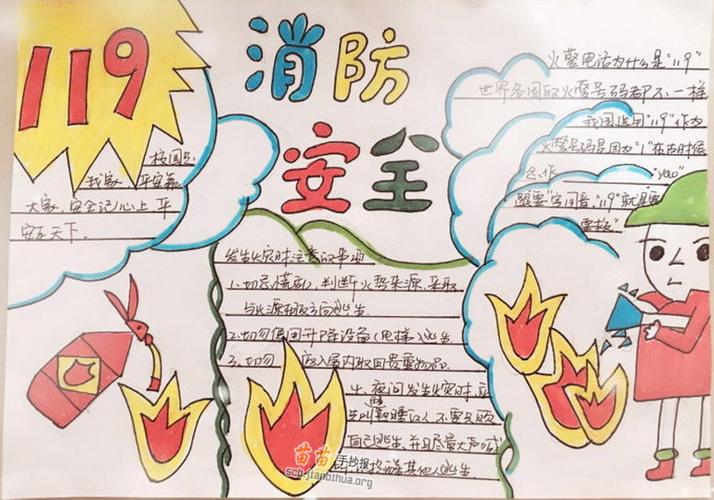 119
消防
安全
校园是
我家,平安靠
大家,安全记心上 平
安在天下.
火警电话为什么是"119"
世界各国取火警号码都不一样
我国选用"119"作为
火警号码是因为"1"在古时候
念作 "yao"
跟"要"字同音,"119"就是要
要救"
发生火灾时注意的事项
1.切忌慌乱,判断火势来源,采取
与火源相反方向逃生
2.切勿使用升降设备(电梯)逃生
3.切勿 返入屋内取回贵重物品.
4.夜间发生火灾时,应
先叫醒熟睡的人,不要只顾
自己逃生,并且尽量大声喊
其他人逃生
苗苗手抄报
scb.jianbihua.org